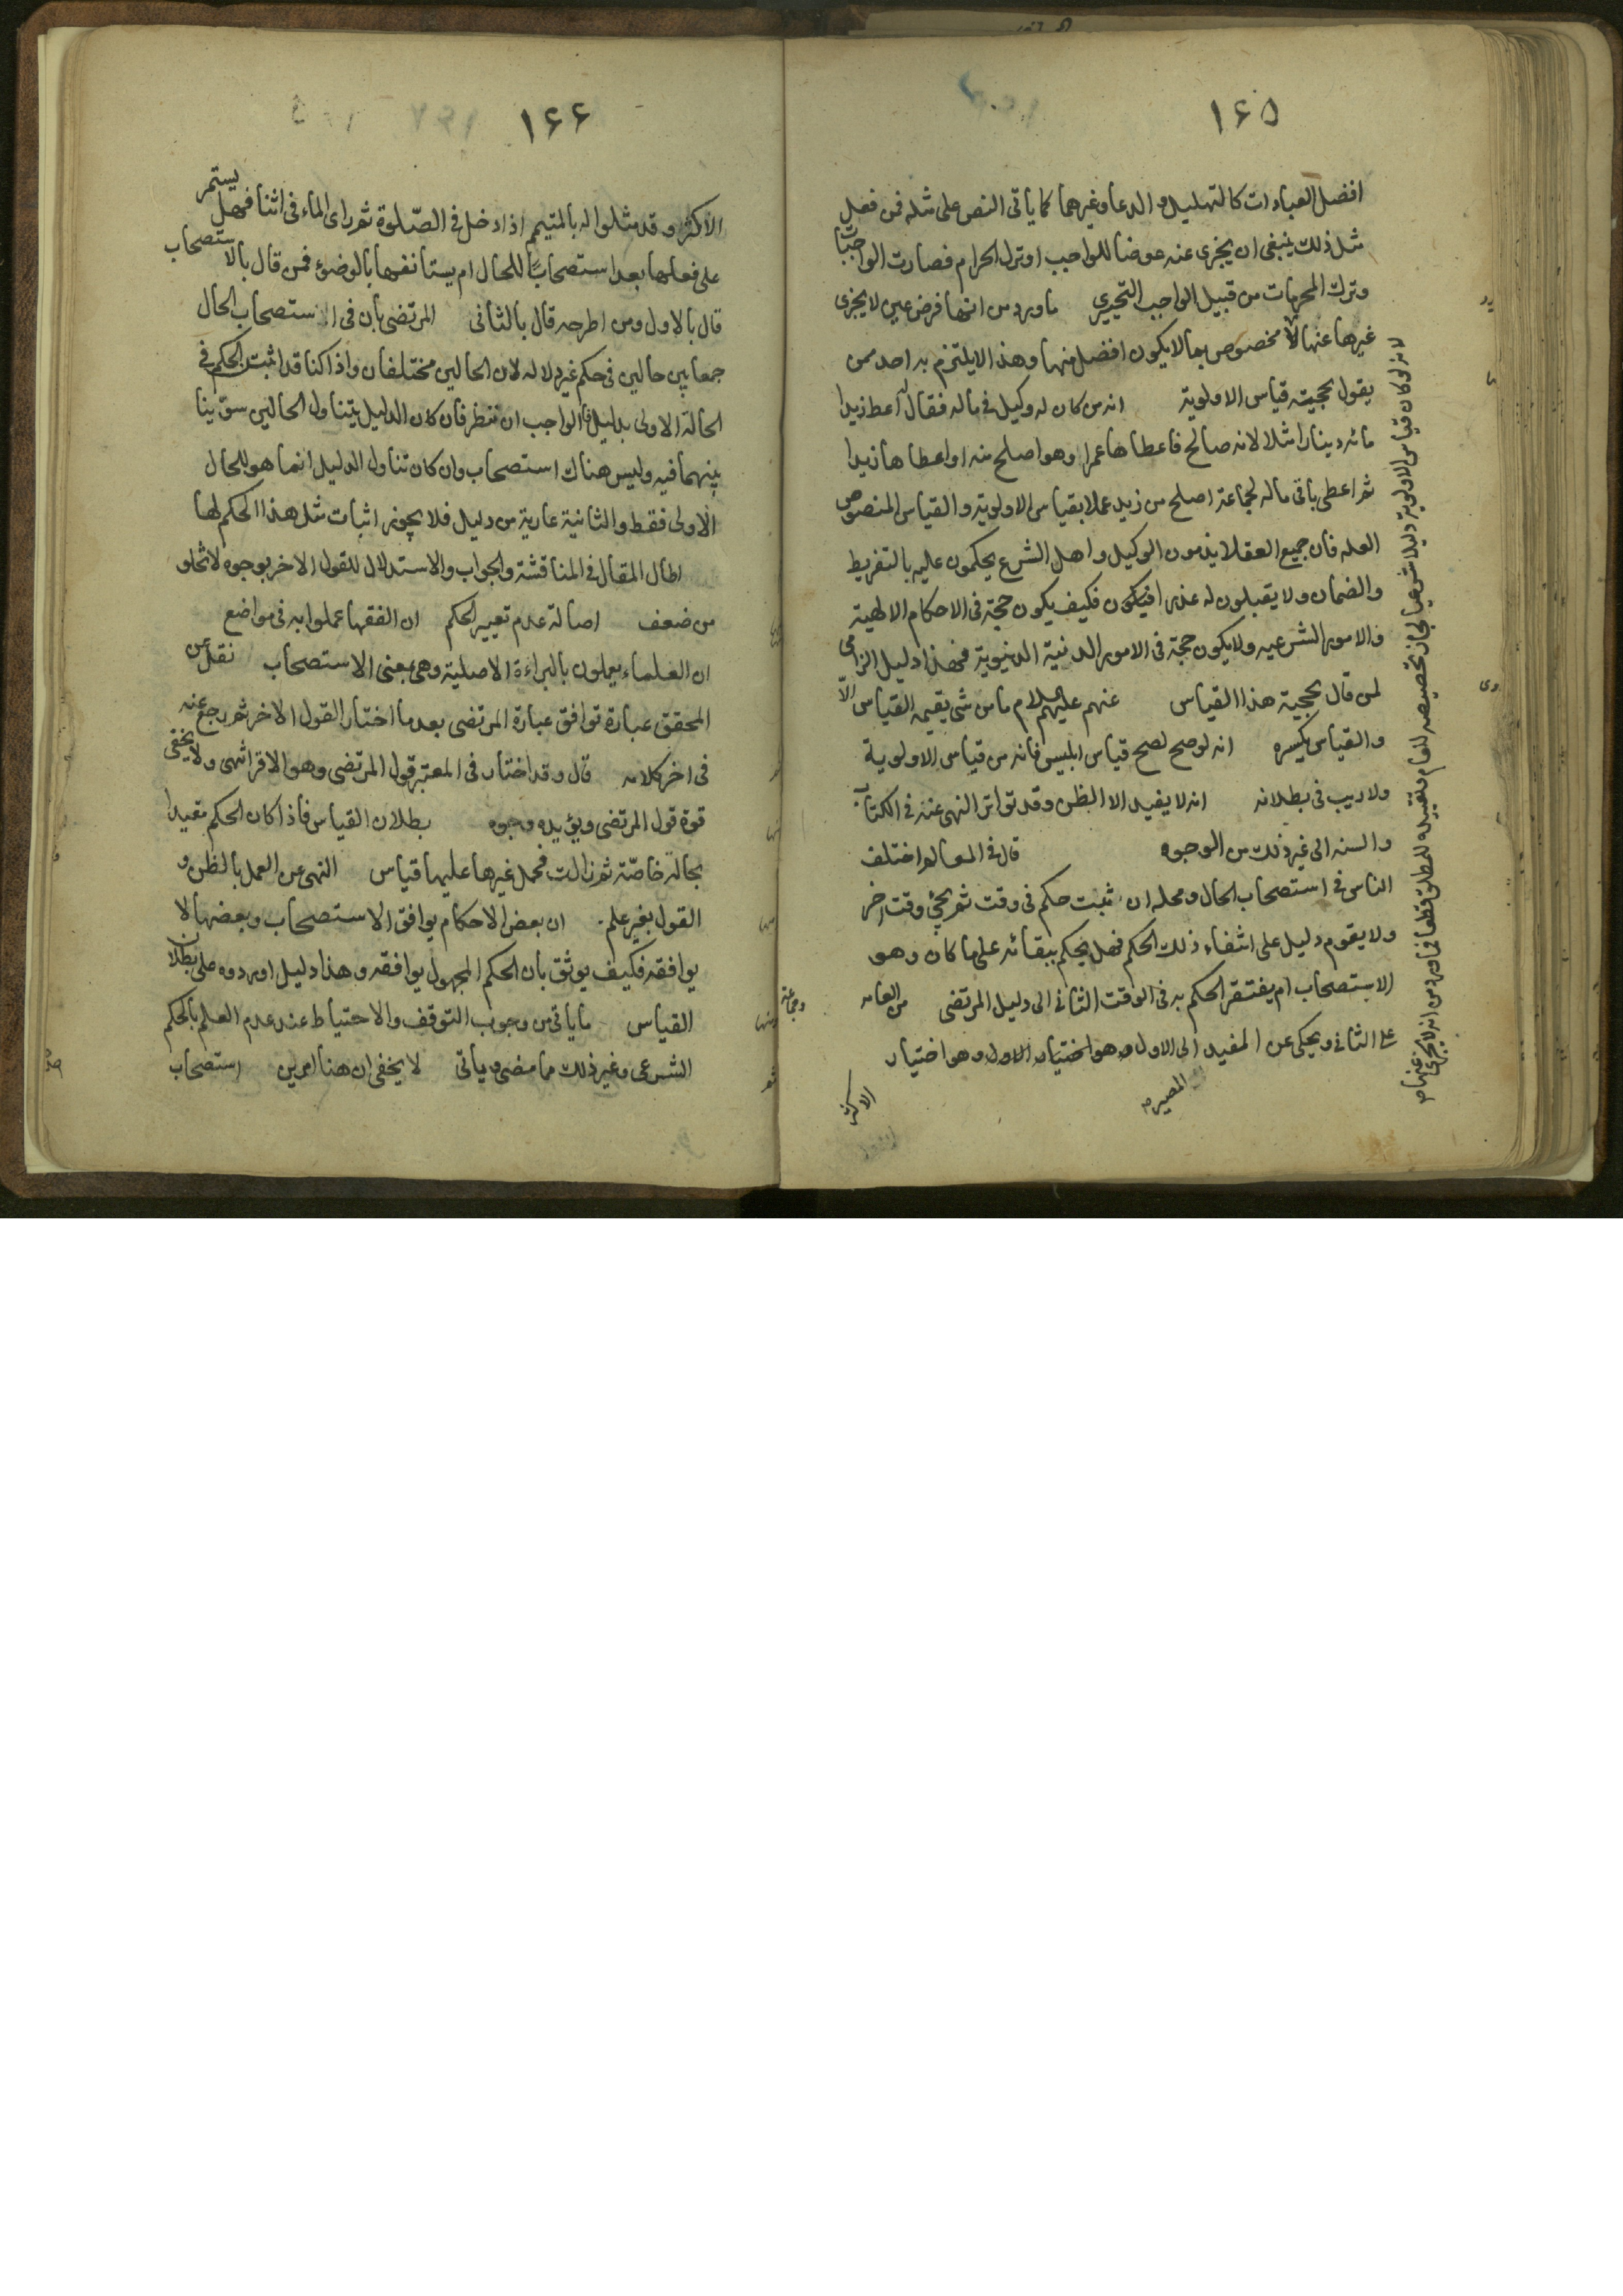 ١٦٥
افضل العبادات كالتهليل و الدعا وغيرهما كما ياتى النص على مثله فمن فعل
مثل ذلك ينبغى ان يجزى عنه عوضا للواجب او ترك الحرام فصارت الواجبات
وترك المحرمات من قبيل الواجب التخييرى ما ورد من انها فرض عين لا يجزى
غيرها عنها لا مخصوص بما لا يكون افضل منها وهذا لا يلتزم به احد ممن
يقول بحجيته قياس الاولوية انه من كان له وكيل فى ماله فقال له اعط زيدا
مائه دينارا مثلا لانه صالح فاعطاها عمرا وهو اصلح منه او اعطاها زيدا
ثم اعطى باقى ماله لجماعة اصلح من زيد عملا بقياس الاولوية والقياس المنصوص
العله فان جميع العقلا يذمون الوكيل واهل الشرع يحكمون عليه بالتفريط
والضمان ولا يقبلون له عذرا فيكون فكيف يكون حجة فى الاحكام الالهية
والامور الشرعيه ولا يكون حجة فى الامور الدنية الدنيوية فهذا دليل الزامى
لمن قال بحجية هذا القياس عنهم عليهم السلام ما من شى يقيمه القياس الّا
والقياس يكسره انه لو صح لصح قياس ابليس فانه من قياس الاولوية
ولا ريب فى بطلانه انه لا يفيد الا الظن وقد تواتر النهى عنه فى الكتاب
والسنه الى غير ذلك من الوجوه قال فى المعالم اختلف
الناس فى استصحاب الحال ومحله ان يثبت حكم فى وقت ثم يجئ وقت اخر
ولا يقوم دليل على انتفاء ذلك الحكم فهل يحكم ببقائه على ما كان وهو
الاستصحاب ام يفتقر الحكم به فى الوقت الثانى الى دليل المرتضى وجماعة من العامه
على الثانى ويحكى عن المفيد المصير الى الاول وهو اختيار الاول وهو اختيار
الاكثر
لانه لو كان قياس الاولوية دليلا شرعيا لجاز تخصيصه للعام وتقييده للمطلق قطعا فما ورد من انه لا يجزى غيرها عنها
١٦٦
الاكثر وقد مثلوا له بالمتيمم اذا دخل فى الصّلوة ثم راى الماء فى اثنا فهل يستمر
على فعلها بعد استصحابًا للحال ام يستانفها بالوضوء فمن قال بالاستصحاب
قال بالاول ومن اطرحه قال بالثانى المرتضى بان فى الاستصحاب الحال
جمعا بين حالين فى حكم غير دلاله لان الحالين مختلفان واذا كنا قد اثبت الحكم فى
الحالة الاولى بدليل فالواجب ان تنظر فان كان الدليل يتناول الحالين سوّينا
بينهما فيه وليس هناك استصحاب وان كان تناول الدليل انما هو للحال
الاولى فقط والثانية عارية من دليل فلا يجوز اثبات مثل هذا الحكم لها
اطال المقال فى المناقشة والجواب والاستدلال للقول الاخر بوجوه لا تخلو
من ضعف اصالة عدم تغيير الحكم ان الفقها عملوا به فى مواضع
ان العلماء يعملون بالبراءة الاصلية وهى بمعنى الاستصحاب نقل عن
المحقق عبارة توافق عبارة المرتضى بعد ما اختار القول الاخر ثم رجع عنه
فى اخر كلامه قال وقد اختار فى المعتبر قول المرتضى وهو الاقرب انتهى ولا يخفى
قوة قول المرتضى ويؤيده وجوه بطلان القياس فاذا كان الحكم مقيدا
بحالة خاصّة ثم زالت فحمل غيرها عليها قياس النهى عن العمل بالظن و
القول بغير علم ان بعض الاحكام يوافق الاستصحاب وبعضها لا
يوافقه فكيف يوثق بان الحكم المجهول يوافقه وهذا دليل اوردوه على بطلان
القياس ما ياتى من وجوب التوقف والاحتياط عند عدم العلم بالحكم
الشرعى وغير ذلك مما مضى وياتى لا يخفى ان هنا امرين استصحاب